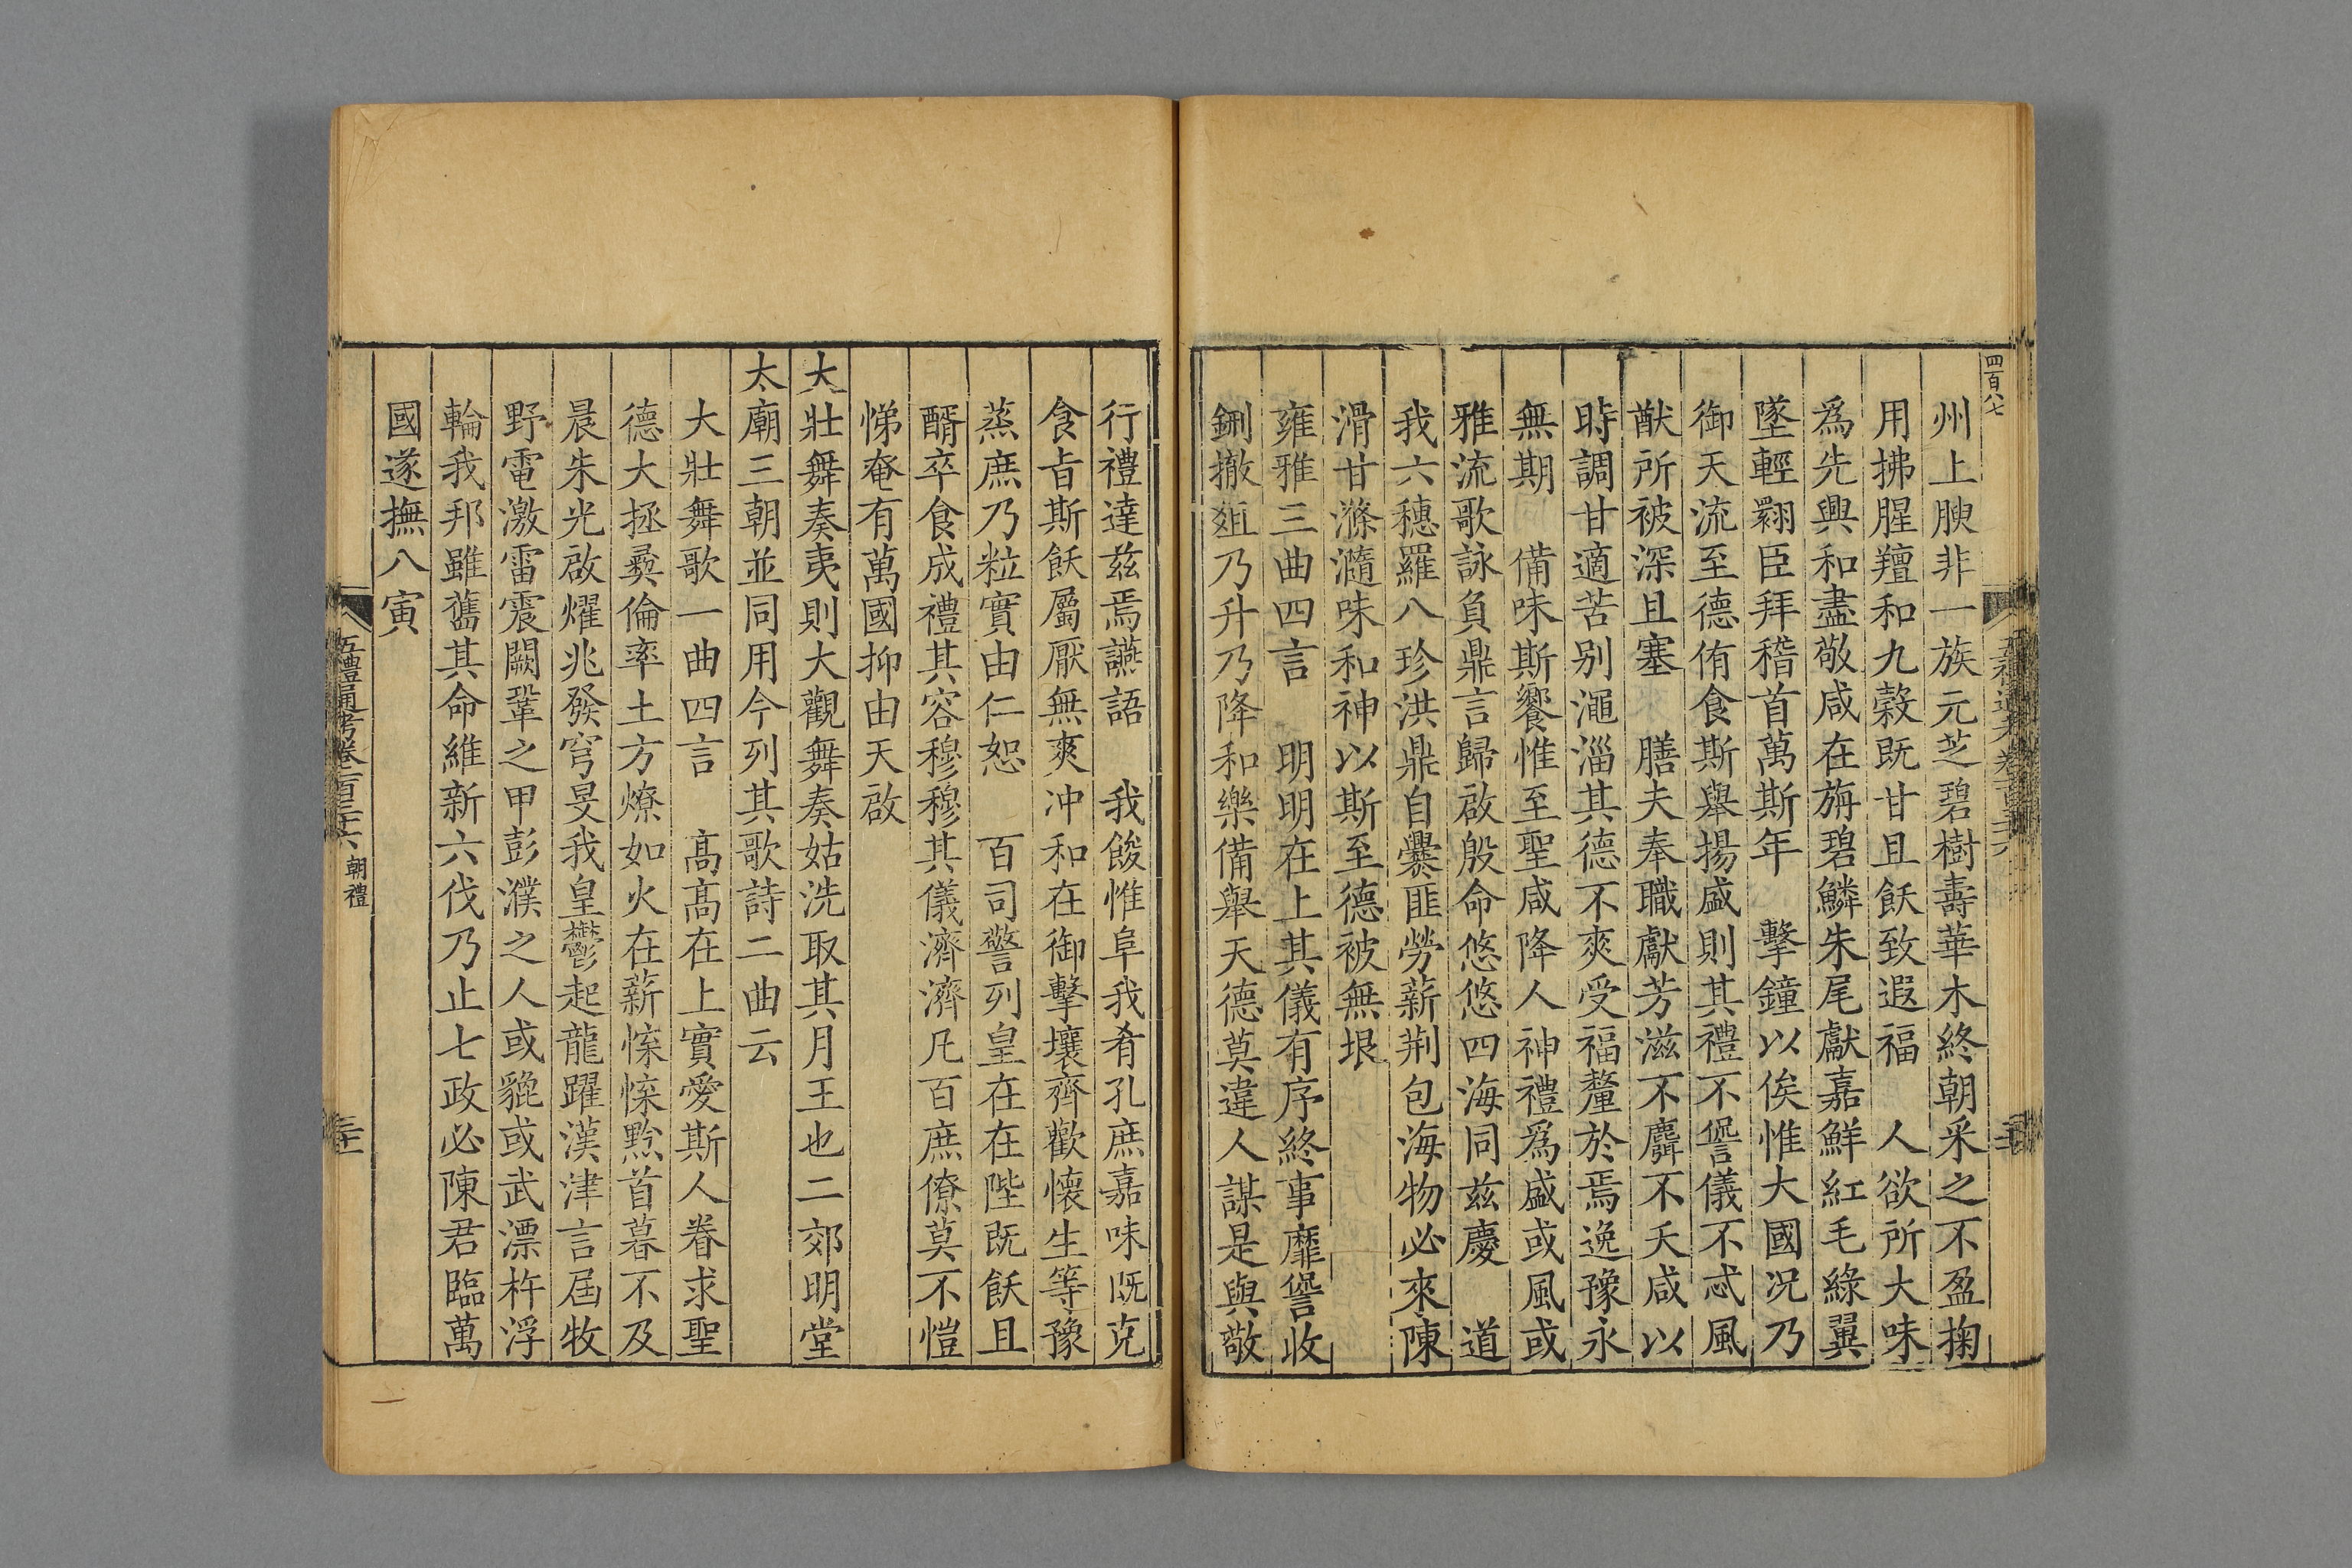 四百八七
州上腴非一族元芝碧樹壽華木終朝采之不盈掬
用拂腥羶和九榖既甘且飫致遐福　人欲所大味
爲先興和盡敬咸在旃碧鱗朱尾獻嘉鮮紅毛綠翼
墜輕翾臣拜稽首萬斯年　擊鐘以俟惟大國况乃
御天流至德侑食斯舉揚盛則其禮不諐儀不忒風
猷所被深且塞　膳夫奉職獻芳滋不麛不夭咸以
時調甘適苦别澠淄其德不爽受福釐於焉逸豫永
無期　備味斯饗惟至聖咸降人神禮爲盛或風或
雅流歌詠負鼎言歸啟殷命悠悠四海同兹慶　道
我六穗羅八珍洪鼎自爨匪勞薪荆包海物必來陳
滑甘滫瀡味和神以斯至德被無垠
雍雅三曲四言　明明在上其儀有序終事靡諐收
鉶撤爼乃升乃降和樂備舉天德莫違人謀是與敬
行禮達兹焉讌語　我餕惟阜我肴孔庶嘉味既克
食旨斯飫屬厭無爽冲和在御擊壤齊歡懷生等豫
蒸庶乃粒實由仁恕　百司警列皇在在陛既飫且
醑卒食成禮其容穆穆其儀濟濟凡百庶僚莫不愷
悌奄有萬國抑由天啟
大壯舞奏夷則大觀舞奏姑洗取其月王也二郊明堂
太廟三朝並同用今列其歌詩二曲云
大壯舞歌一曲四言　髙髙在上實愛斯人眷求聖
德大拯彞倫率土方燎如火在薪惵惵黔首暮不及
晨朱光啟燿兆發穹旻我皇鬱起龍躍漢津言屆牧
野電激雷震闕鞏之甲彭濮之人或貔或武漂杵浮
輪我邦雖舊其命維新六伐乃止七政必陳君臨萬
國遂撫八寅
五禮通考卷一百三十六　朝禮